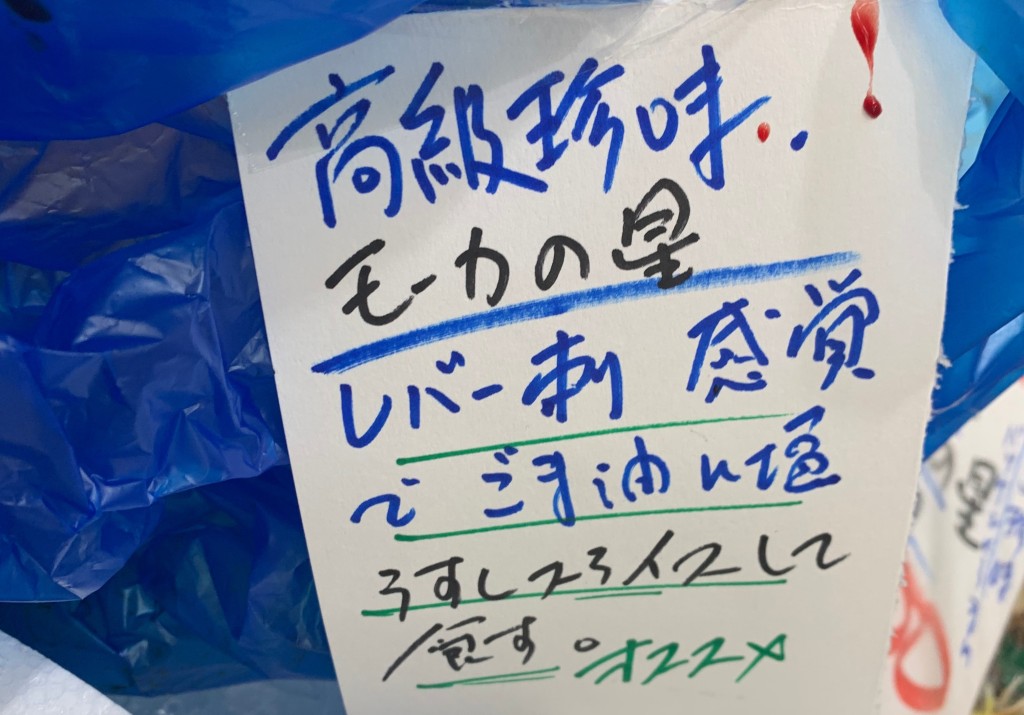 高級珍味..
モーカの星
レバー刺 感覚
で ごま油に塩
うすくスライスして
食す。オススメ
星